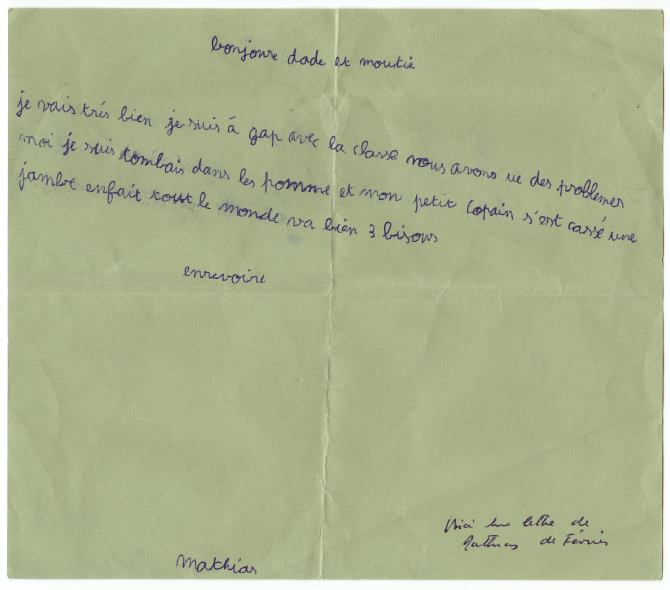 bonjoure dade et moutié
je vais trés bien je suis á gap avec la classe nous avons ue des problemes
moi je suis tombais dans les pomme et mon petit copain s'est cassé une
jambe enfait tout le monde va bien 3 bisous
enrevoire
Mathias
Voici une lettre de
Mathias de Février